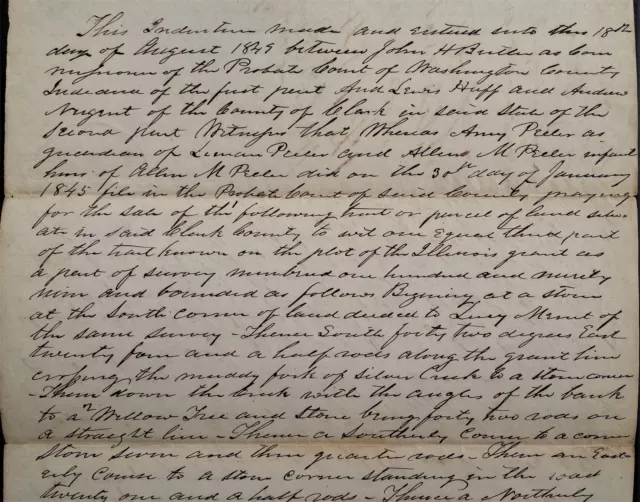 This Indenture made and entered into this 18th
day of August 1849 between John H Butler as Com
missioner of the Probate Court of Washington County
Indiana of the first part And Lewis Huff and Andrew
Nugent of the County of Clark in said State of the
Second part Witness that Whereas Amy Peeler as
guardian of Leman Peeler and Allen M Peeler infant
heirs of Allen M Peeler did on the 30th day of January
1845 file in the Probate Court of said County praying
for the sale of the following tract or parcel of land situ
ate in said Clark County to wit one Equal third part
of the tract known on the plot of the Illinois grant as
a part of survey numbred one hundred and ninety
nine and bounded as follows Begining at a stone
at the South corner of land deeded to of
the same survey – Thence South forty two degrees East
twenty four and a half rods along the grant line
crossing the muddy fork of Silver Creek to a stone corner
Thence down the creek with the angles of the bank
to a Willow Tree and Stone being forty two rods on
a straight line – Thence a Southerly Course to a corner
Stone seven and three quarter rods – Thence an East
erly Course to a stone corner standing in the road
twenty one and a half rods – Thence a Northerly